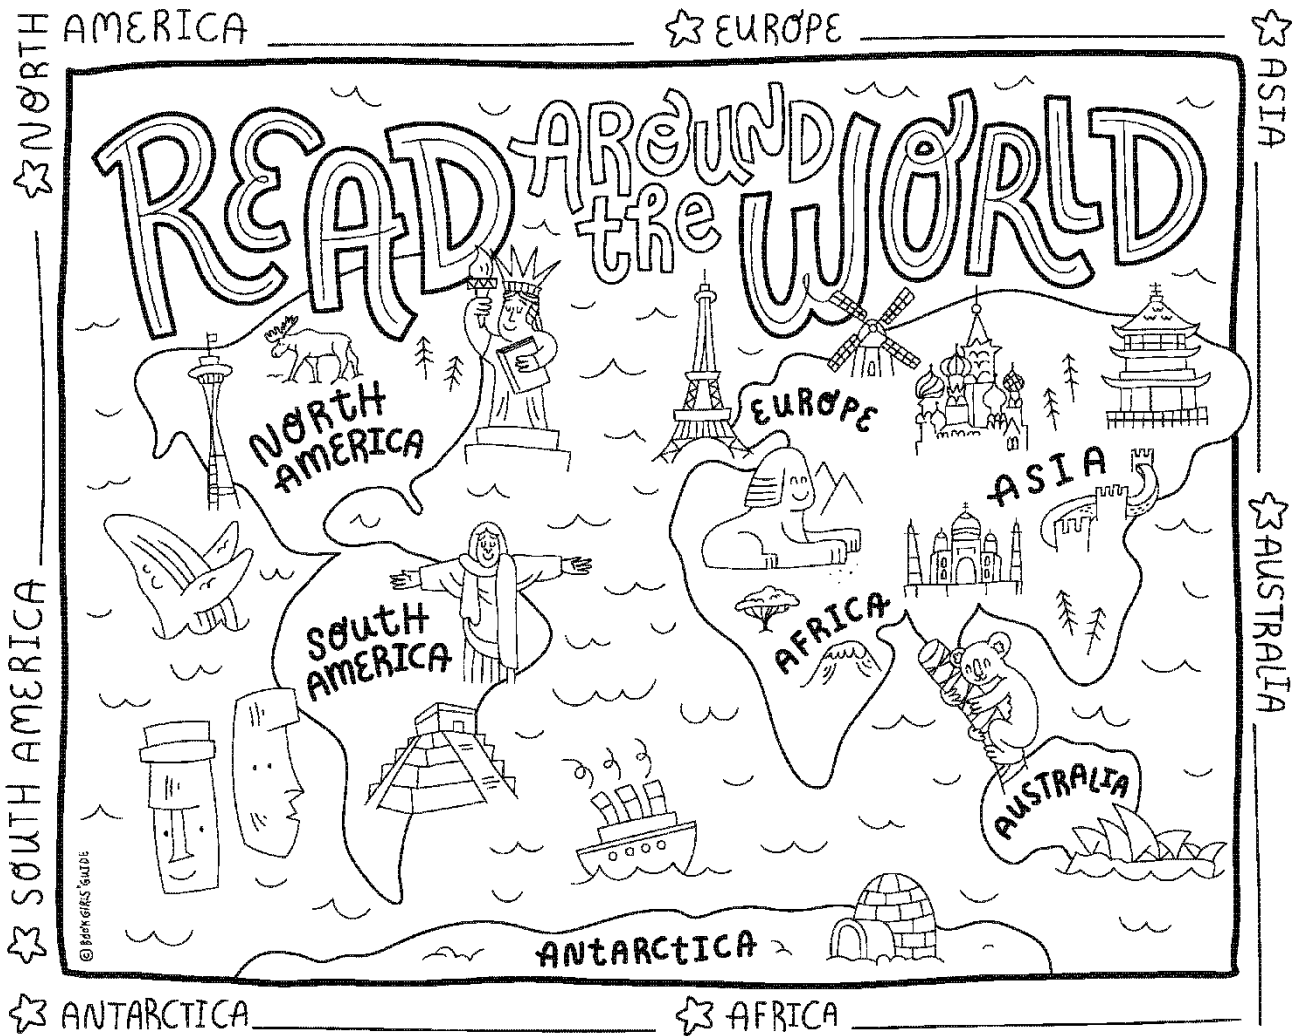 NORTH AMERICA
EUROPE
ASIA
READ AROUND the WORLD
NORTH
AMERICA
EUROPE
ASIA
SOUTH
AMERICA
AFRICA
AUSTRALIA
ANTARCTICA
© BOOK GIRLS' GUIDE
SOUTH AMERICA
AUSTRALIA
ANTARCTICA
AFRICA